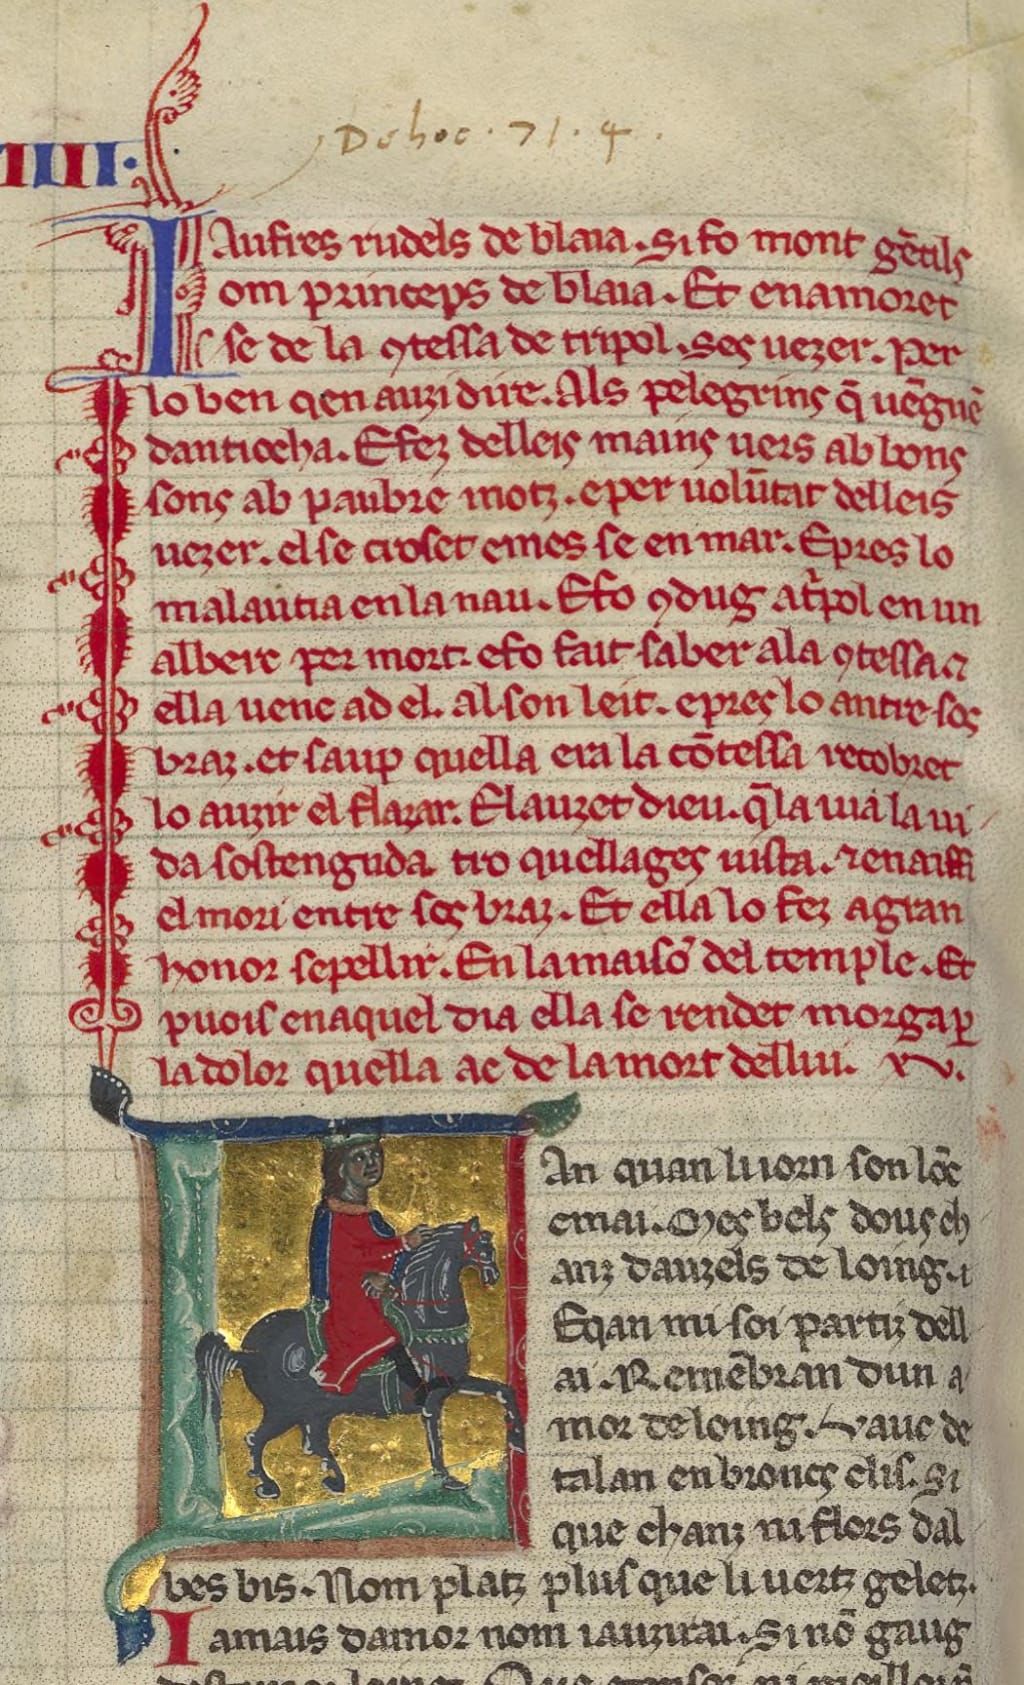 IIII·
Dehoc · 71 · 4 .
IAufres rudels de blaia. Si fo mont gētils
om princeps de blaia. Et enamoret
se de la ꝯtessa de tripol. ses uezer. per
lo ben qen auzi dire. Als pelegrins q̄ uēguē
dantiocha. E fez delleis mains uers ab bons
sons ab paubre motz. e per uolūtat delleis
uezer. el se croset e mes se en mar. E pres lo
malautia en la nau. E fo ꝯdug at͛pol en un
alberc per mort. e fo fait saber a la ꝯtessa ⁊
ella uenc ad el. al son leit. e pres lo antre sos
braz. et saup quella era la cōtessa recobret
lo auzir el flazar. E lauzet dieu. q̄ la uia la ui
da sostenguda tro quellages uista. ⁊ enaissi
el mori entre sos braz. Et ella lo fez a gran
honor sepellir. En la maisō del temple. Et
puois en aquel dia ella se rendet morga ꝑ
la dolor quella ac de la mort dellui.
LAn quan li iorn son lōc
e mai. Mes bels dous ch
anz dauzels de loing.
E qan mi soi partiz dell
ai. Remēbran dun a
mor de loing. Vauc de
talan enbroncs e clis. Si
que chanz ni flors dal
bes bis. Nom platz plus que li uertz geletz.
Iamais damor nom iauzirai. Si nō gaug